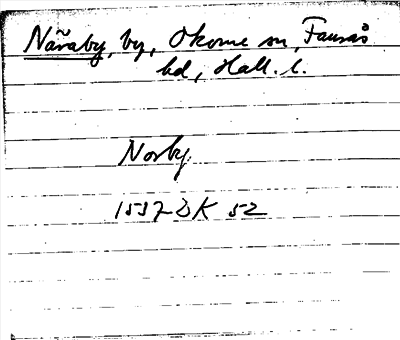 Näraby, by, Okome sn, Faurås
hd, Hall. l.
Norby
1537 DK 52